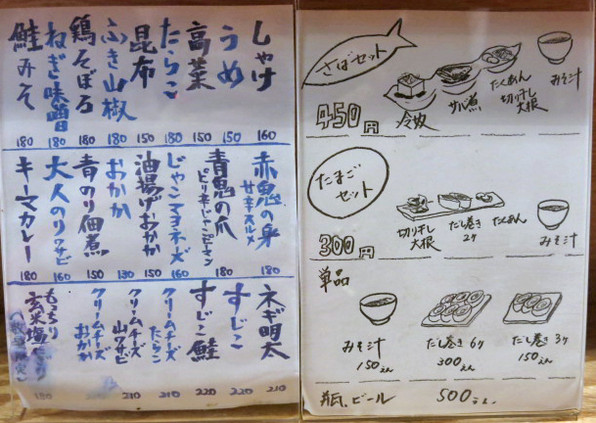 しゃけ
160
うめ
150
高菜
150
たらこ
180
昆布
150
ふき山椒
180
鶏そぼろ
180
ねぎ味噌
180
鮭みそ
180
赤鬼の身
サキスルメ
180
青鬼の爪
ピリ辛じゃこピーマン
180
じゃこマヨネーズ
160
油揚げおかか
150
おかか
130
青のり佃煮
150
大人のり
ワサビ
160
キーマカレー
180
ネギ明太
210
すじこ
220
すじこ鮭
220
クリームチーズ
たらこ
210
クリームチーズ
山ワサビ
210
クリームチーズ
おかか
もっちり
玄米塩
180
さばセット
450円
冷奴
サバ煮
たくあん
切り干し
大根
みそ汁
たまごセット
300円
切り干し
大根
だし巻き
2ケ
たくあん
みそ汁
単品
みそ汁
150えん
だし巻き 6ケ
300えん
だし巻き 3ケ
150えん
瓶ビール 500えん